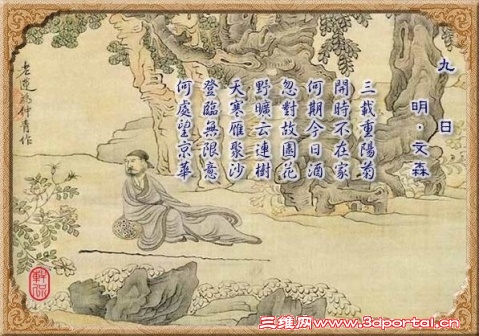 九日
明·文森
三載重陽菊
開時不在家
何期今日酒
忽對故園花
野曠云連樹
天寒雁聚沙
登臨無限意
何處望京華
老蓮為仲青作
三维网www.3dportal.cn